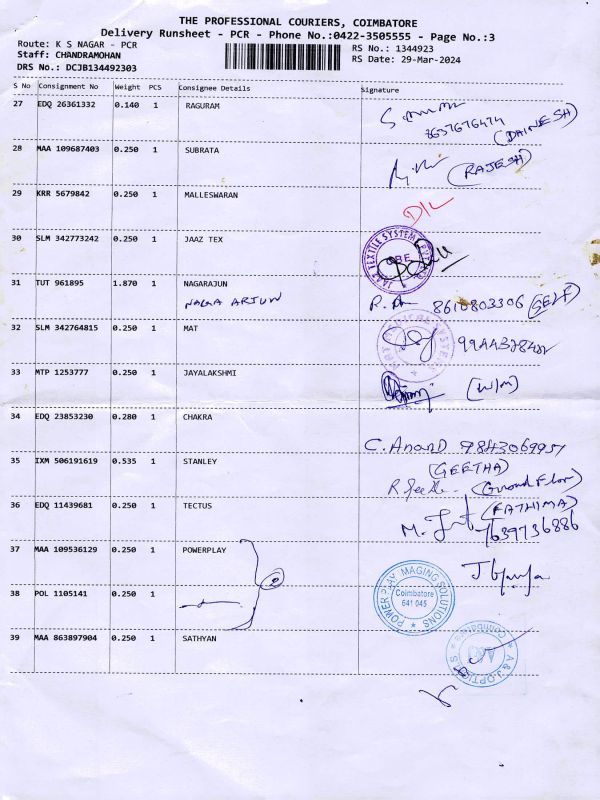 THE PROFESSIONAL COURIERS, COIMBATORE
Delivery Runsheet - PCR - Phone No.:0422-3505555 - Page No.:3
Route: K S NAGAR - PCR
Staff: CHANDRAMOHAN
DRS No.: DCJB134492303
RS No.: 1344923
RS Date: 29-Mar-2024
S No Consignment No Weight PCS Consignee Details Signature
27 EDQ 26361332 0.140 1 RAGURAM
(DAINESH)
28 MAA 109687403 0.250 1 SUBRATA
(RAJESH)
29 KRR 5679842 0.250 1 MALLESWARAN
D/L
30 SLM 342773242 0.250 1 JAAZ TEX
JAAZ TEXTILE SYSTEM
CBE
31 TUT 961895 1.870 1 NAGARAJUN
NAGA ARJUN 8610803306 (SELF)
32 SLM 342764815 0.250 1 MAT
33 MTP 1253777 0.250 1 JAYALAKSHMI
(W/M)
34 EDQ 23853230 0.280 1 CHAKRA
C. Anand
35 IXM 506191619 0.535 1 STANLEY
(GEETHA)
(Ground Floor)
36 EDQ 11439681 0.250 1 TECTUS
(FATHIMA)
7639736886
37 MAA 109536129 0.250 1 POWERPLAY
38 POL 1105141 0.250 1
POWER PLAY MAGING SOLUTIONS
Coimbatore
641 045
39 MAA 863897904 0.250 1 SATHYAN
A & J OPTICALS
Coimbatore